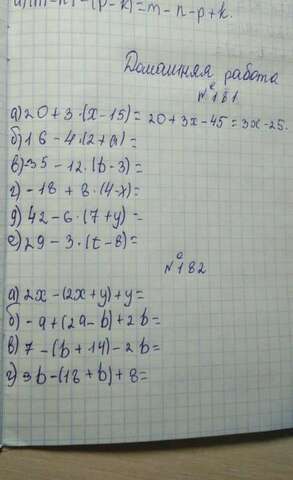 а)(m-n)-(p-k)=m-n-p+k.
Домашняя работа
№181.
а)20+3·(x-15)=20+3x-45=3x-25.
б)16-4·(2+a)=
в)-35-12·(b-3)=
г)-18+8·(4-x)=
д)42-6·(7+y)=
е)29-3·(t-8)=
№182
а)2x-(2x+y)+y=
б)-a+(2a-b)+2b=
в)7-(b+14)-2b=
г)3b-(18+b)+8=